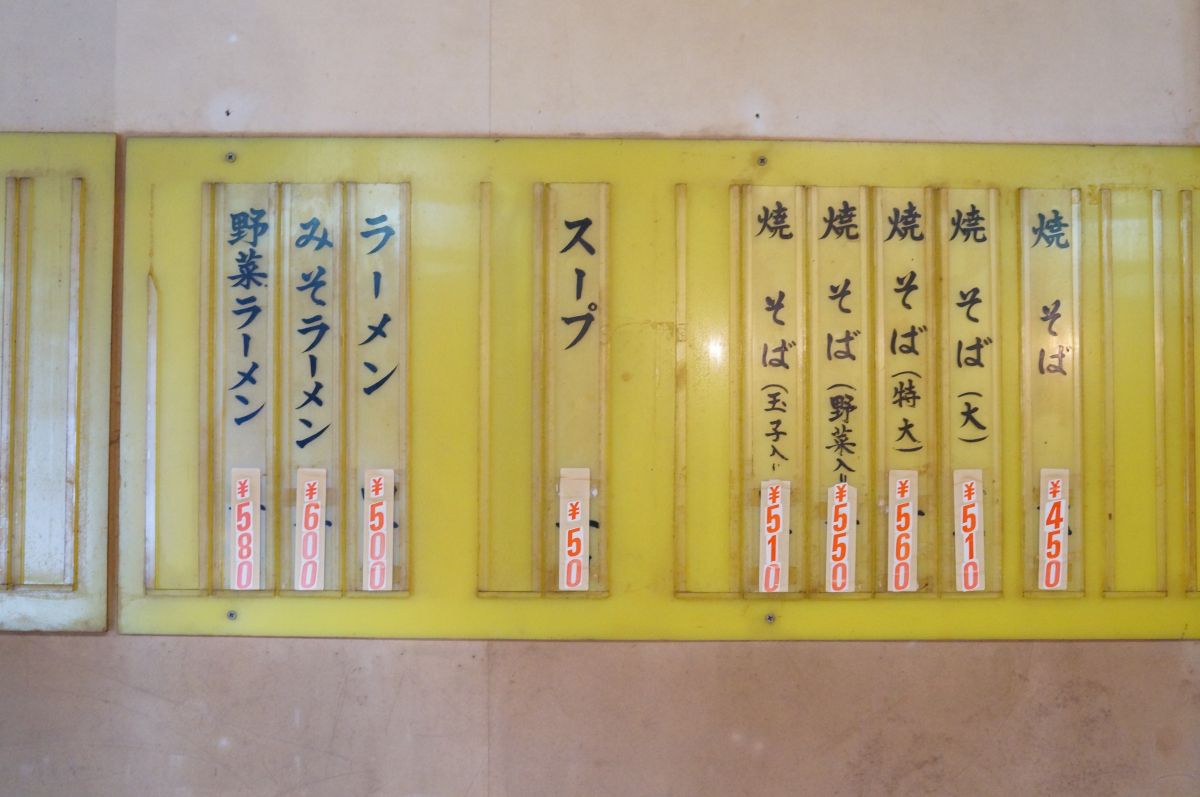 焼そば ¥450
焼そば(大) ¥510
焼そば(特大) ¥560
焼そば(野菜入り ¥550
焼そば(玉子入り ¥510
スープ ¥50
ラーメン ¥500
みそラーメン ¥600
野菜ラーメン ¥580